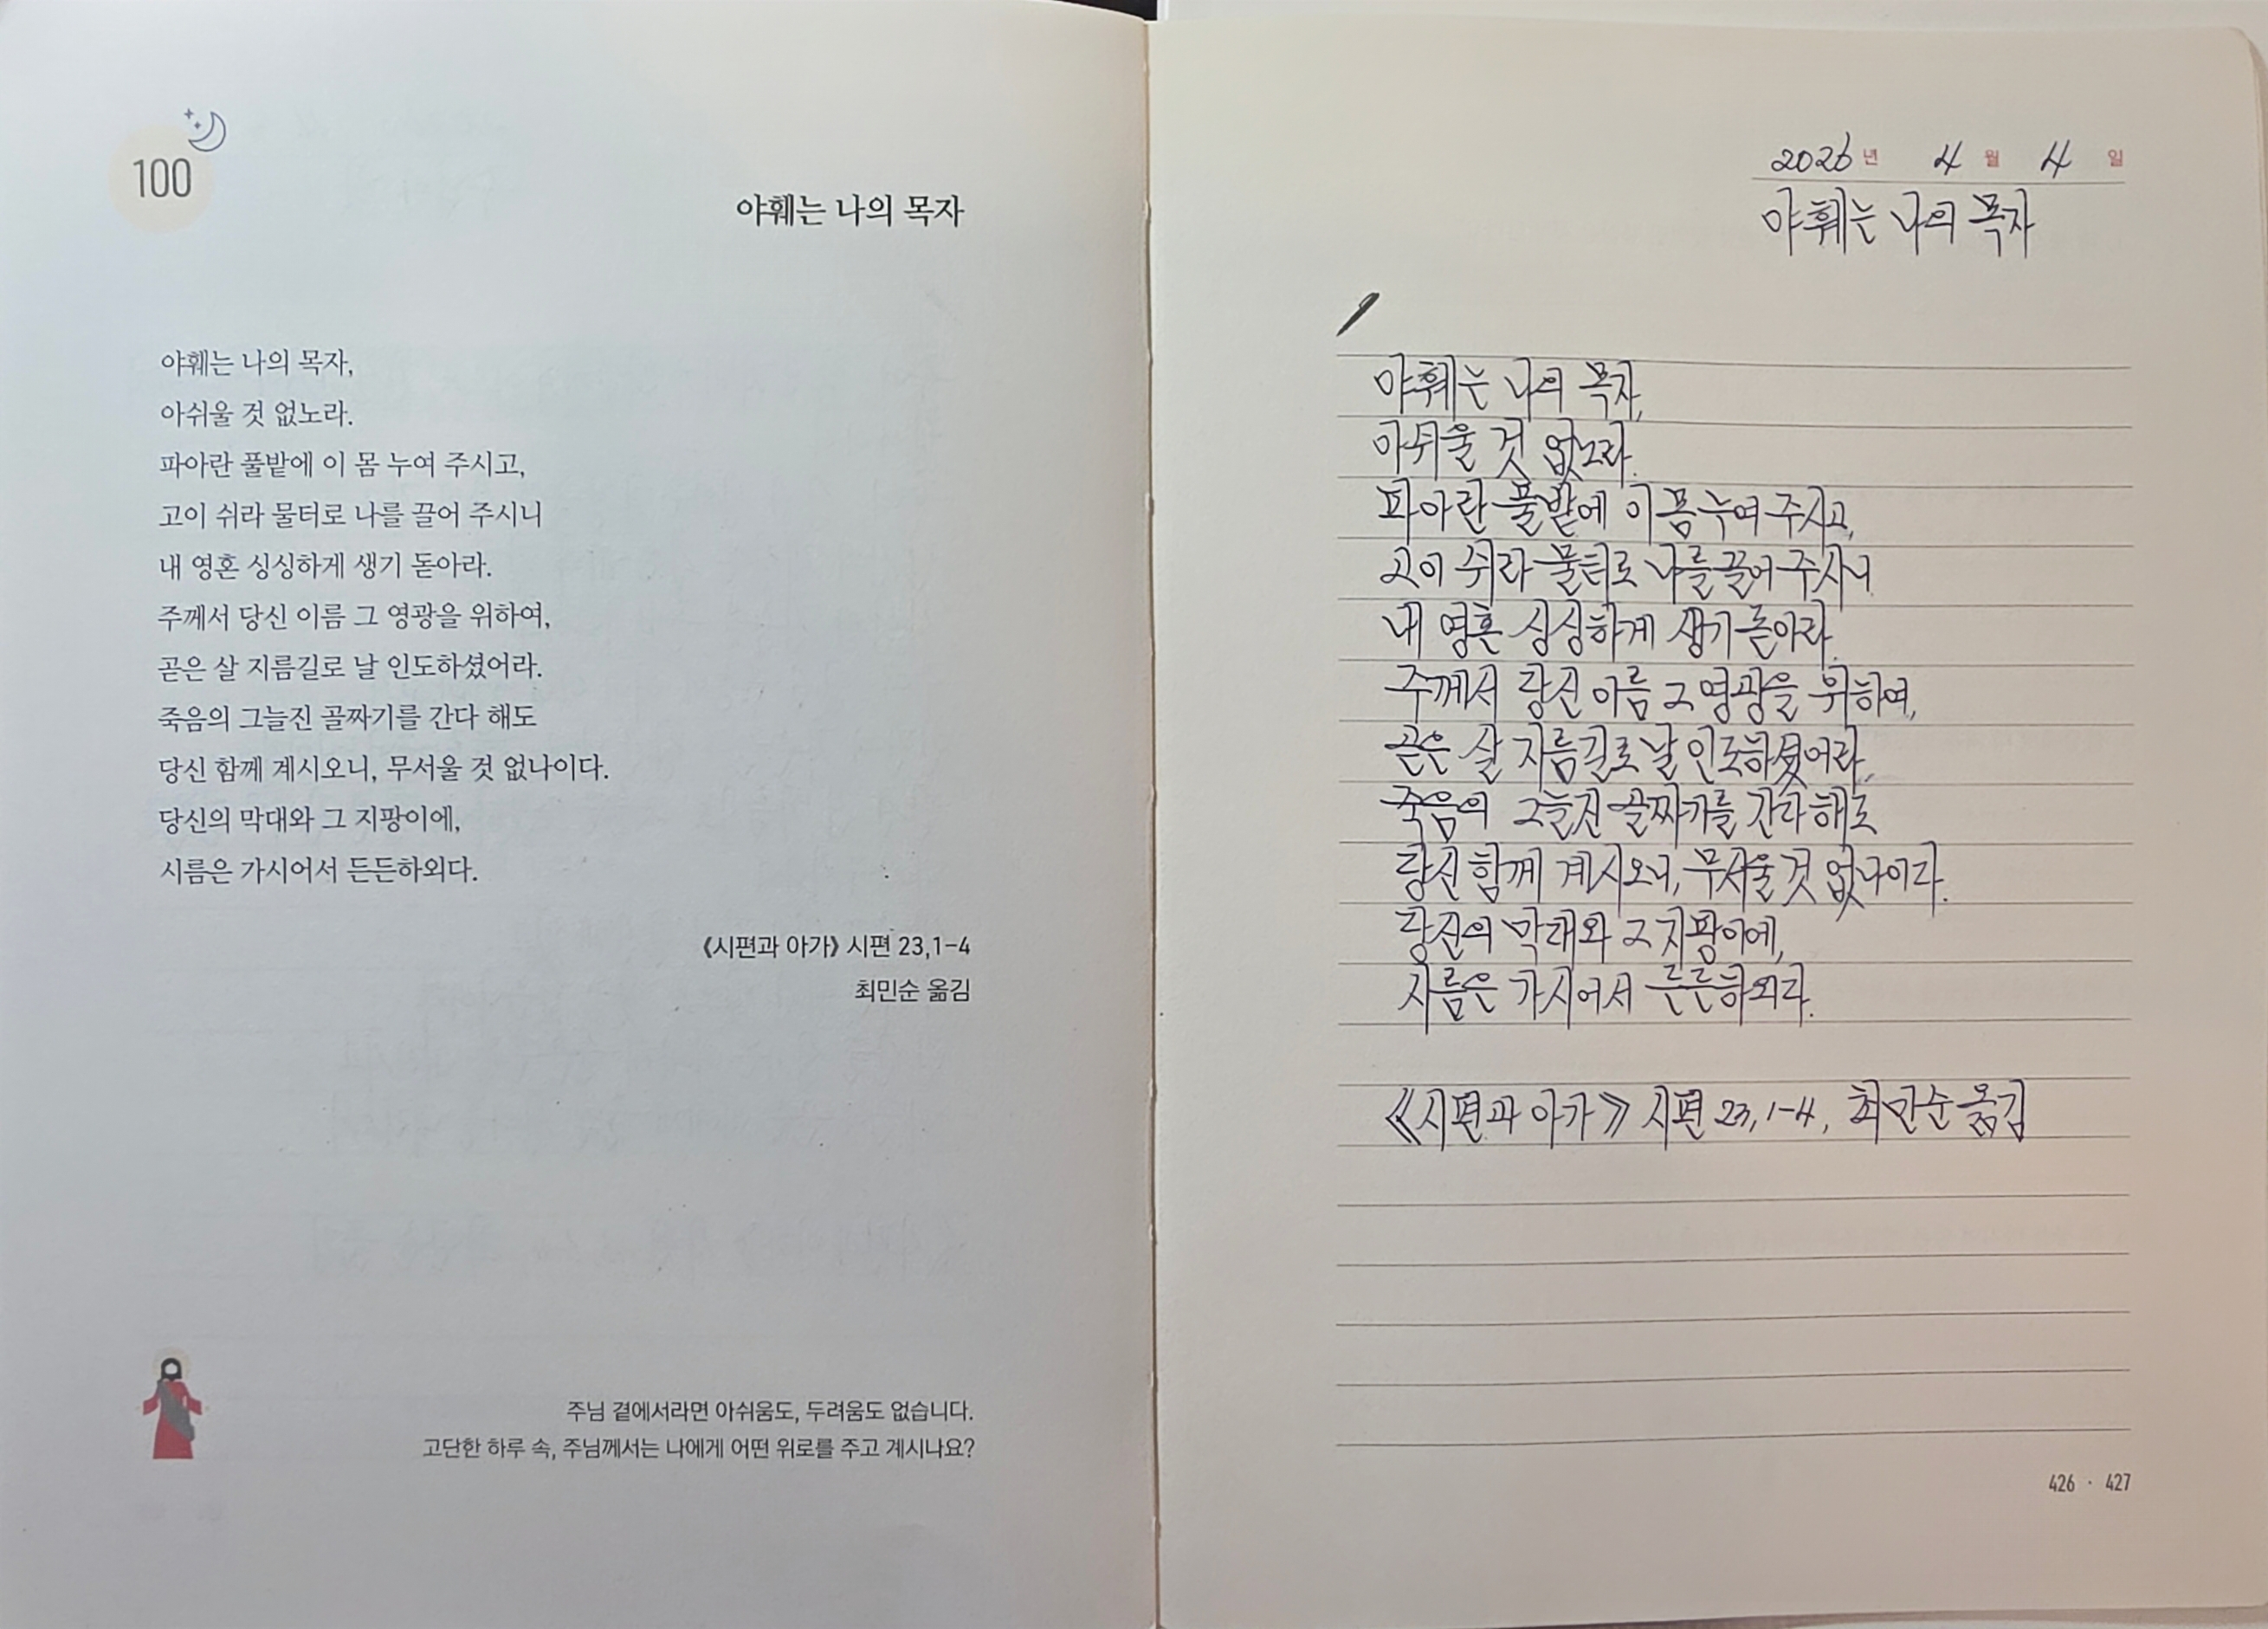 100
야훼는 나의 목자
야훼는 나의 목자,
아쉬울 것 없노라.
파아란 풀밭에 이 몸 누여 주시고,
고이 쉬라 물터로 나를 끌어 주시니
내 영혼 싱싱하게 생기 돋아라.
주께서 당신 이름 그 영광을 위하여,
곧은 살 지름길로 날 인도하셨어라.
죽음의 그늘진 골짜기를 간다 해도
당신 함께 계시오니, 무서울 것 없나이다.
당신의 막대와 그 지팡이에,
시름은 가시어서 든든하외다.
《시편과 아가》 시편 23,1-4
최민순 옮김
주님 곁에서라면 아쉬움도, 두려움도 없습니다.
고단한 하루 속, 주님께서는 나에게 어떤 위로를 주고 계시나요?
2026년 4월 4일
야훼는 나의 목자
야훼는 나의 목자,
아쉬울 것 없노라.
파아란 풀밭에 이 몸 누여 주시고,
고이 쉬라 물터로 나를 끌어 주시니
내 영혼 싱싱하게 생기 돋아라.
주께서 당신 이름 그 영광을 위하여,
곧은 살 지름길로 날 인도하셨어라.
죽음의 그늘진 골짜기를 간다 해도
당신 함께 계시오니, 무서울 것 없나이다.
당신의 막대와 그 지팡이에,
시름은 가시어서 든든하외다.
《시편과 아가》 시편 23,1-4, 최민순 옮김
426 · 427